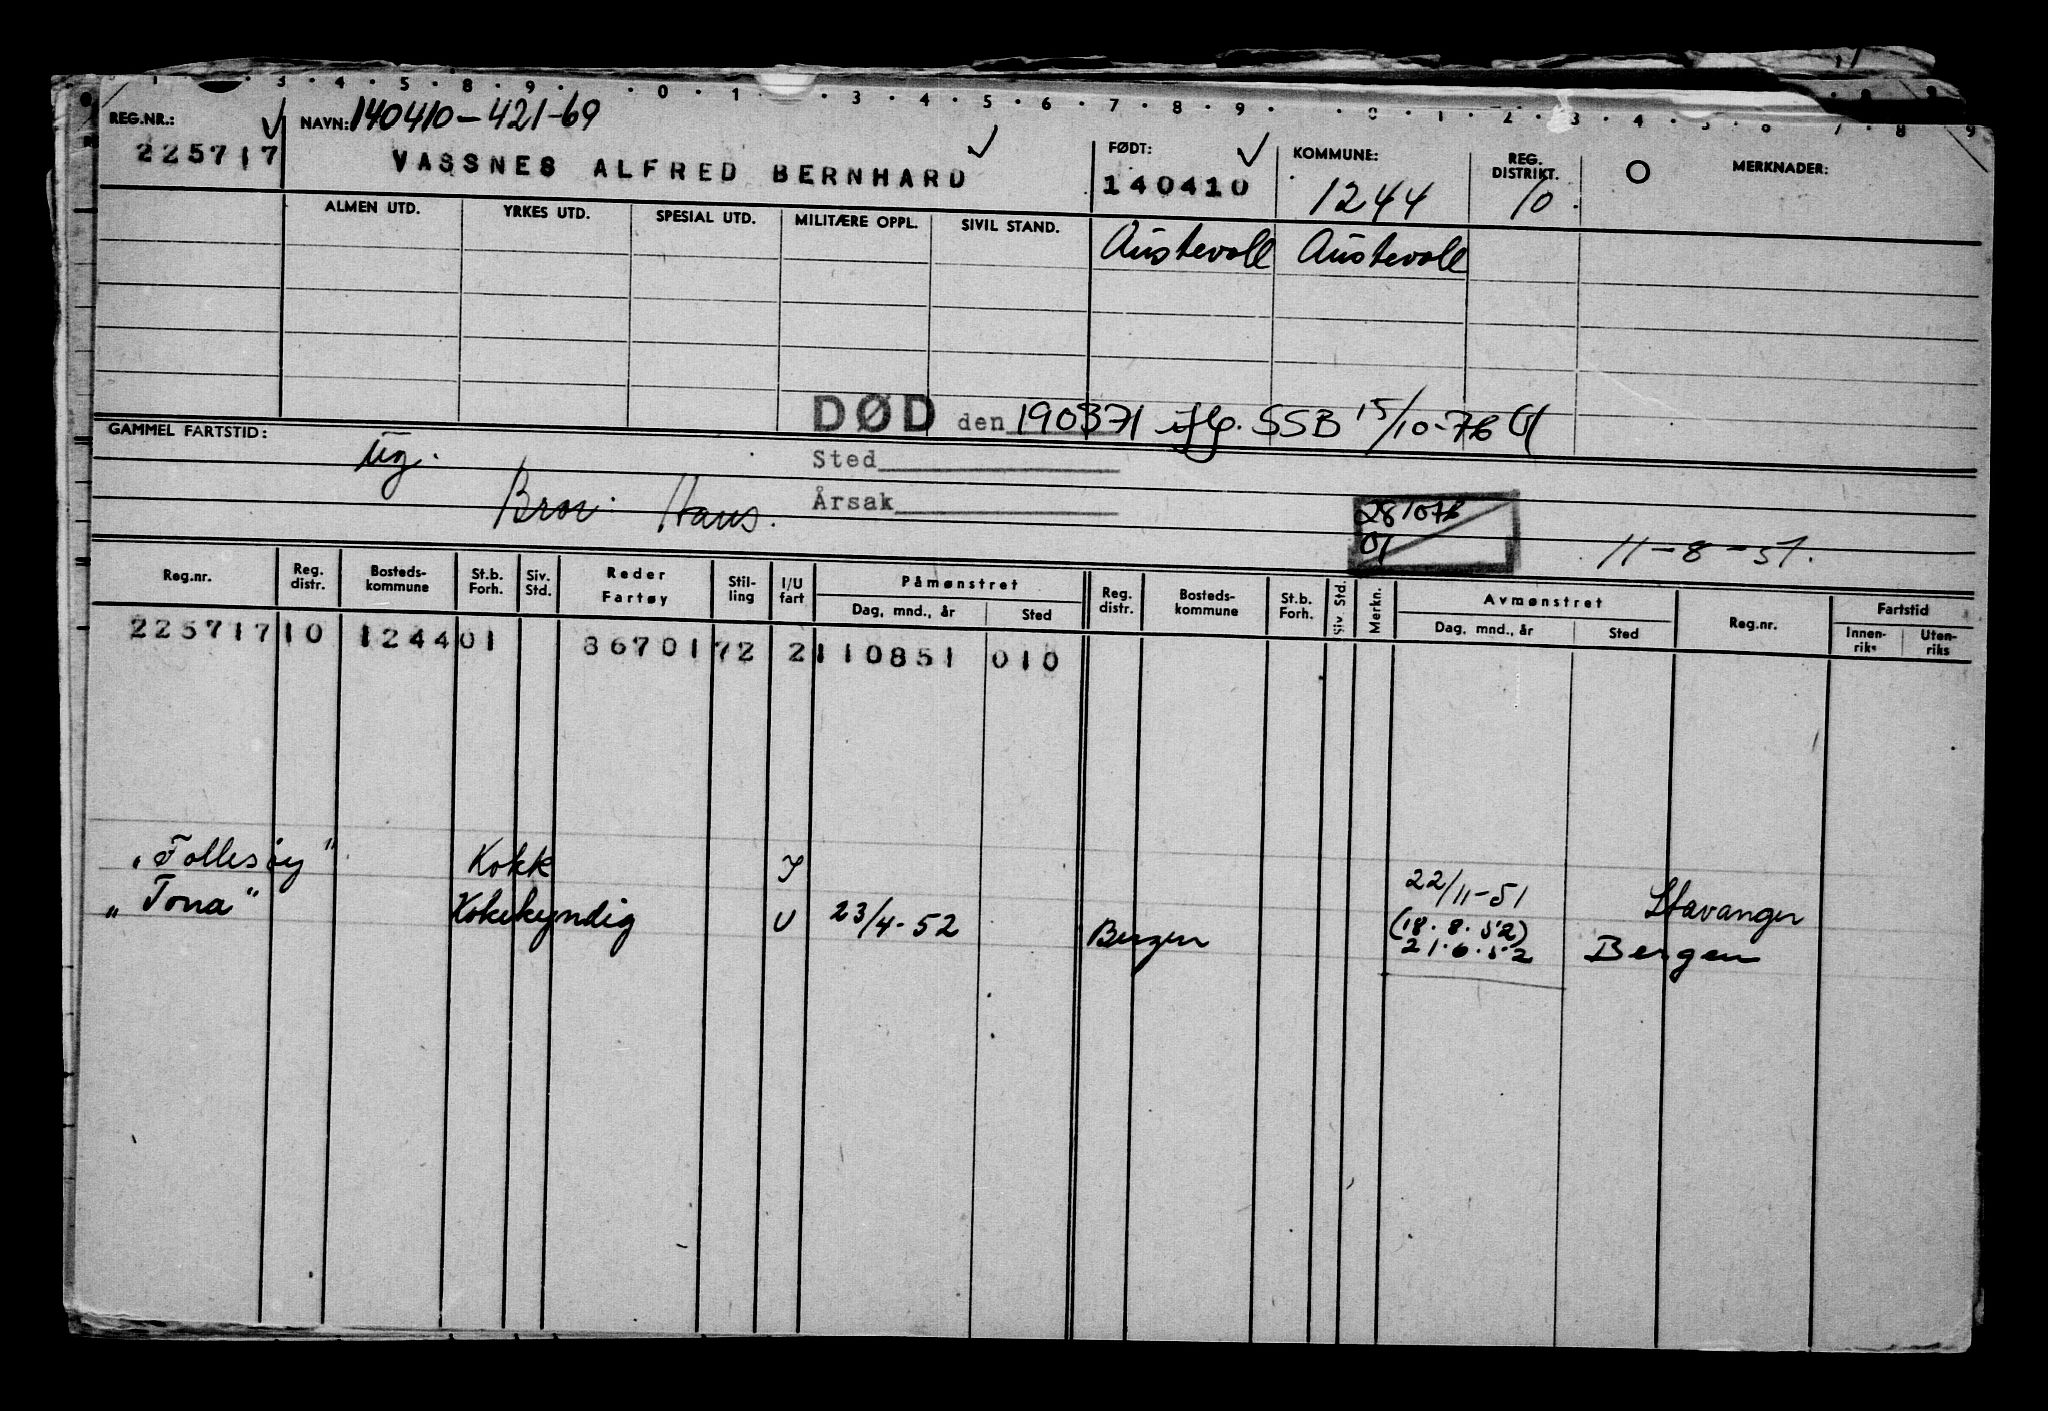 REG.NR.: NAVN: 140410-421-69
225717 VASSNES ALFRED BERNHARD FØDT: 140410 KOMMUNE: 1244 REG. DISTRIKT. 10 MERKNADER:
ALMEN UTD. YRKES UTD. SPESIAL UTD. MILITÆRE OPPL. SIVIL STAND. Austevoll Austevoll
DØD den 190371 iflg. SSB 15/10-76
GAMMEL FARTSTID: ug. Sted
Bror: Hans. Årsak
281076
11-8-51.
Reg.nr. Reg. distr. Bosteds-kommune St.b. Forh. Siv. Std. Reder Fartøy Stil-ling I/U fart Påmønstret Dag, mnd., år Sted Reg. distr. Bosteds-kommune St.b. Forh. Siv. Std. Merkn. Avmønstret Dag, mnd., år Sted Reg.nr. Fartstid Innen-riks Uten-riks
225717 10 1244 01 86701 72 2 110851 010
"Follesøy" Kokk I 22/11-51 Stavanger
"Tona" Kokekyndig U 23/4-52 Bergen (18.8.52)
21.6.52 Bergen